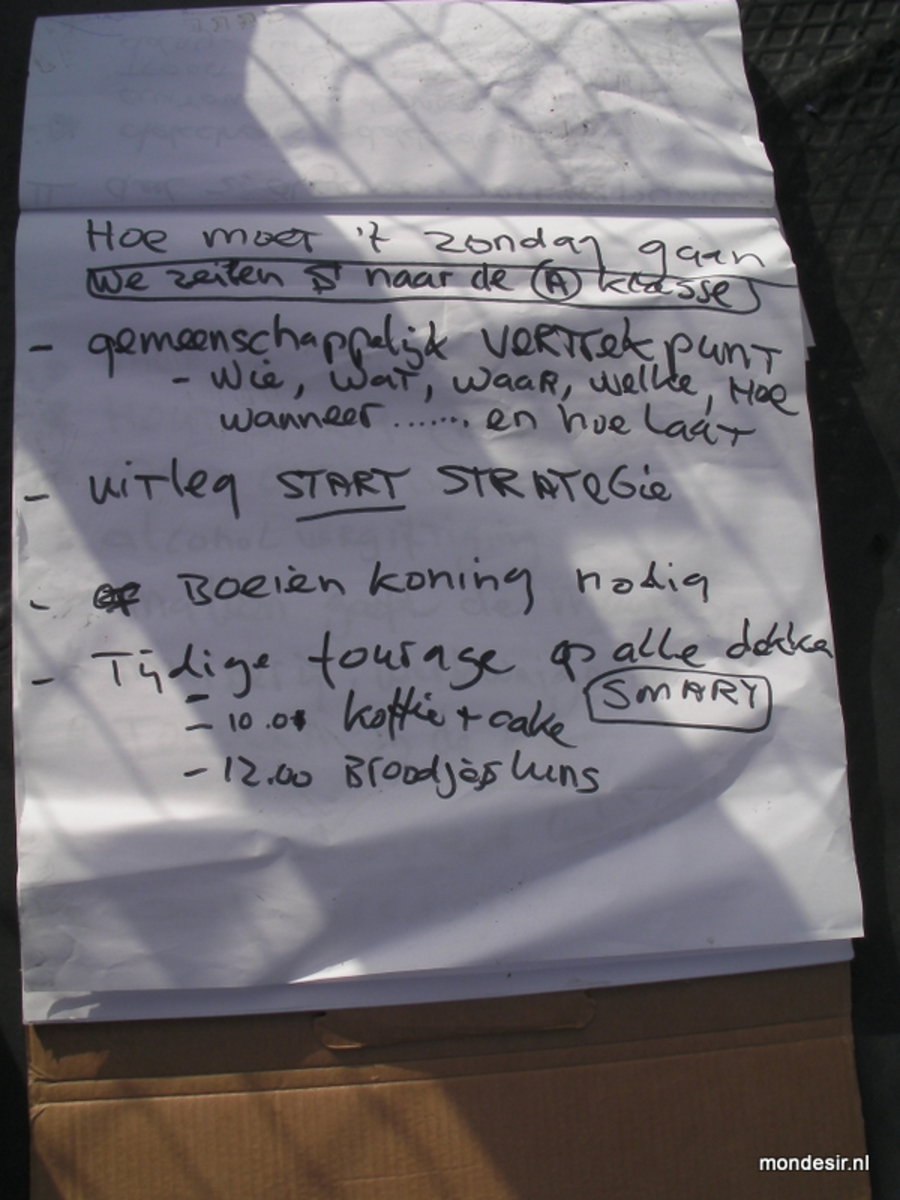 Hoe moet 't zondag gaan
We zeilen naar de A klasse
- gemeenschappelijk VERTrekpunt
- Wie, WAT, WAAR, welke, Hoe
wanneer ....... en hoe laat
- uitleg START STRATEGie
- Boeien koning nodig
- Tijdige fourage op alle dekke
SMARY
-
- 10.01 koffie + cake
- 12.00 Broodjes
mondesir.nl